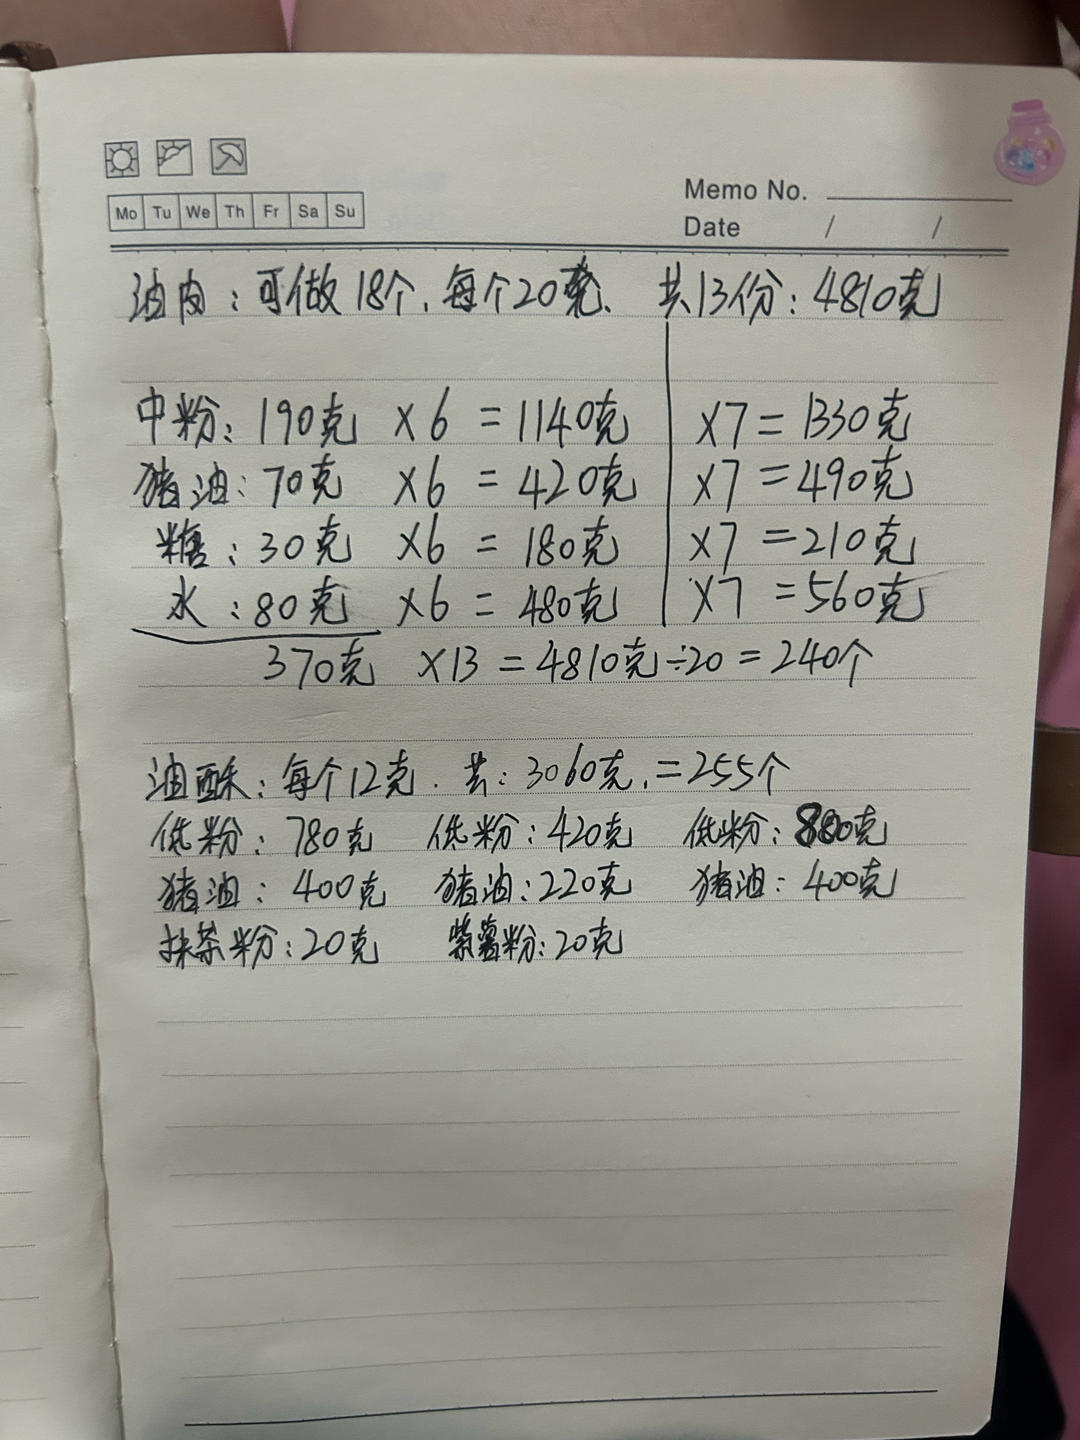 Mo Tu We Th Fr Sa Su
Memo No.
Date / /
油皮：可做18个，每个20克、 共13份：4810克
中粉：190克 ×6 =1140克 ×7=1330克
猪油：70克 ×6 =420克 ×7=490克
糖：30克 ×6 =180克 ×7=210克
水：80克 ×6 =480克 ×7=560克
370克 ×13 =4810克÷20=240个
油酥：每个12克．共：3060克．=255个
低粉：780克 低粉：420克 低粉：800克
猪油：400克 猪油：220克 猪油：400克
抹茶粉：20克 紫薯粉：20克